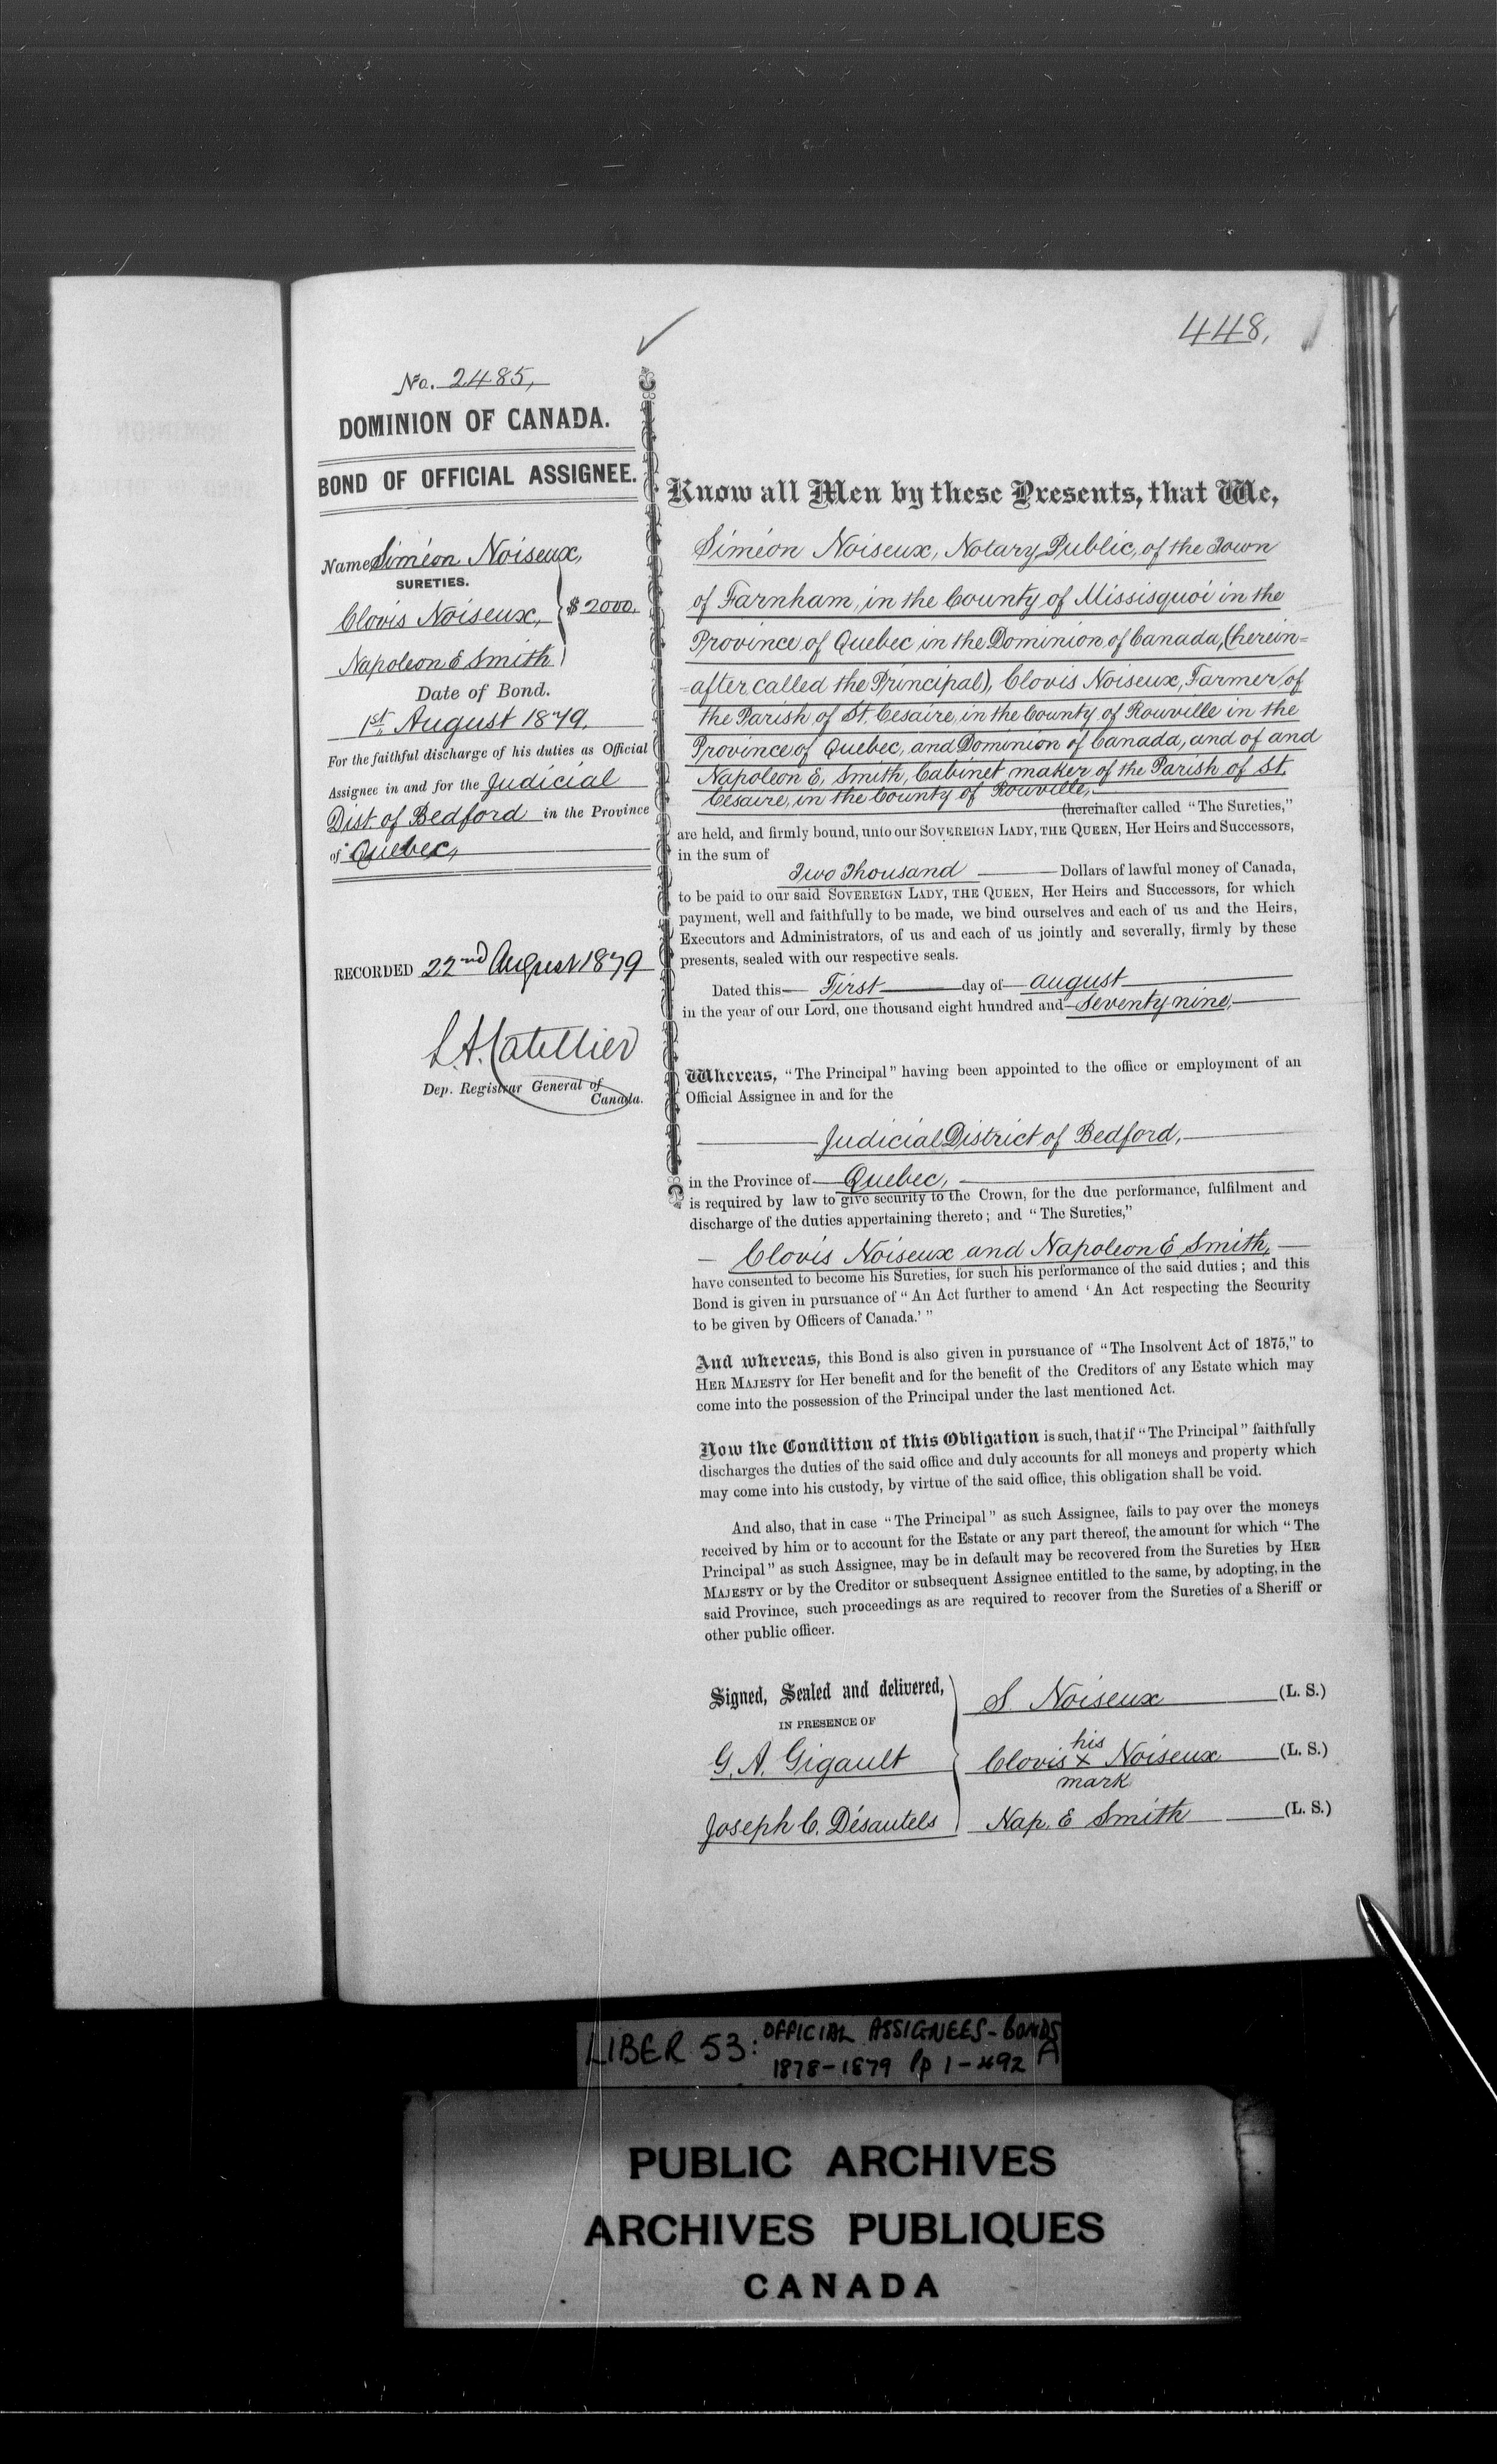 448,
No. 2485,
DOMINION OF CANADA.
BOND OF OFFICIAL ASSIGNEE.
Name Siméon Noiseux,
SURETIES.
Clovis Noiseux, } $2000.
Napoleon E Smith
Date of Bond.
1st August 1879.
For the faithful discharge of his duties as Official
Assignee in and for the Judicial
Dist of Bedford in the Province
of Quebec,
RECORDED 22nd August 1879
L.A. Catellier
Dep. Registrar General of
Canada.
Know all Men by these Presents, that We,
Siméon Noiseux, Notary Public, of the Town
of Farnham, in the County of Missisquoi in the
Province of Quebec in the Dominion of Canada, (herein=
=after called the Principal), Clovis Noiseux, Farmer, of
the Parish of St. Cesaire, in the County of Rouville in the
Province of Quebec, and Dominion of Canada, and of and
Napoleon E. Smith, Cabinet maker of the Parish of St.
Cesaire, in the County of Rouville,
(hereinafter called "The Sureties,"
are held, and firmly bound, unto our SOVEREIGN LADY, THE QUEEN, Her Heirs and Successors,
in the sum of
Two Thousand Dollars of lawful money of Canada,
to be paid to our said SOVEREIGN LADY, THE QUEEN, Her Heirs and Successors, for which
payment, well and faithfully to be made, we bind ourselves and each of us and the Heirs,
Executors and Administrators, of us and each of us jointly and severally, firmly by these
presents, sealed with our respective seals.
Dated this First day of August
in the year of our Lord, one thousand eight hundred and Seventy nine,
Whereas, "The Principal" having been appointed to the office or employment of an
Official Assignee in and for the
Judicial District of Bedford,
in the Province of Quebec,
is required by law to give security to the Crown, for the due performance, fulfilment and
discharge of the duties appertaining thereto; and "The Sureties,"
Clovis Noiseux and Napoleon E Smith,
have consented to become his Sureties, for such his performance of the said duties; and this
Bond is given in pursuance of "An Act further to amend 'An Act respecting the Security
to be given by Officers of Canada.'"
And whereas, this Bond is also given in pursuance of "The Insolvent Act of 1875," to
HER MAJESTY for Her benefit and for the benefit of the Creditors of any Estate which may
come into the possession of the Principal under the last mentioned Act.
Now the Condition of this Obligation is such, that if "The Principal" faithfully
discharges the duties of the said office and duly accounts for all moneys and property which
may come into his custody, by virtue of the said office, this obligation shall be void.
And also, that in case "The Principal" as such Assignee, fails to pay over the moneys
received by him or to account for the Estate or any part thereof, the amount for which "The
Principal" as such Assignee, may be in default may be recovered from the Sureties by HER
MAJESTY or by the Creditor or subsequent Assignee entitled to the same, by adopting, in the
said Province, such proceedings as are required to recover from the Sureties of a Sheriff or
other public officer.
Signed, Sealed and delivered,
IN PRESENCE OF
G. A. Gigault
Joseph C. Désautels
S. Noiseux (L. S.)
his
Clovis x Noiseux (L. S.)
mark
Nap. E Smith (L. S.)
LIBER 53: OFFICIAL ASSIGNEES - BONDS
1878-1879 Pp 1-492 A
PUBLIC ARCHIVES
ARCHIVES PUBLIQUES
CANADA